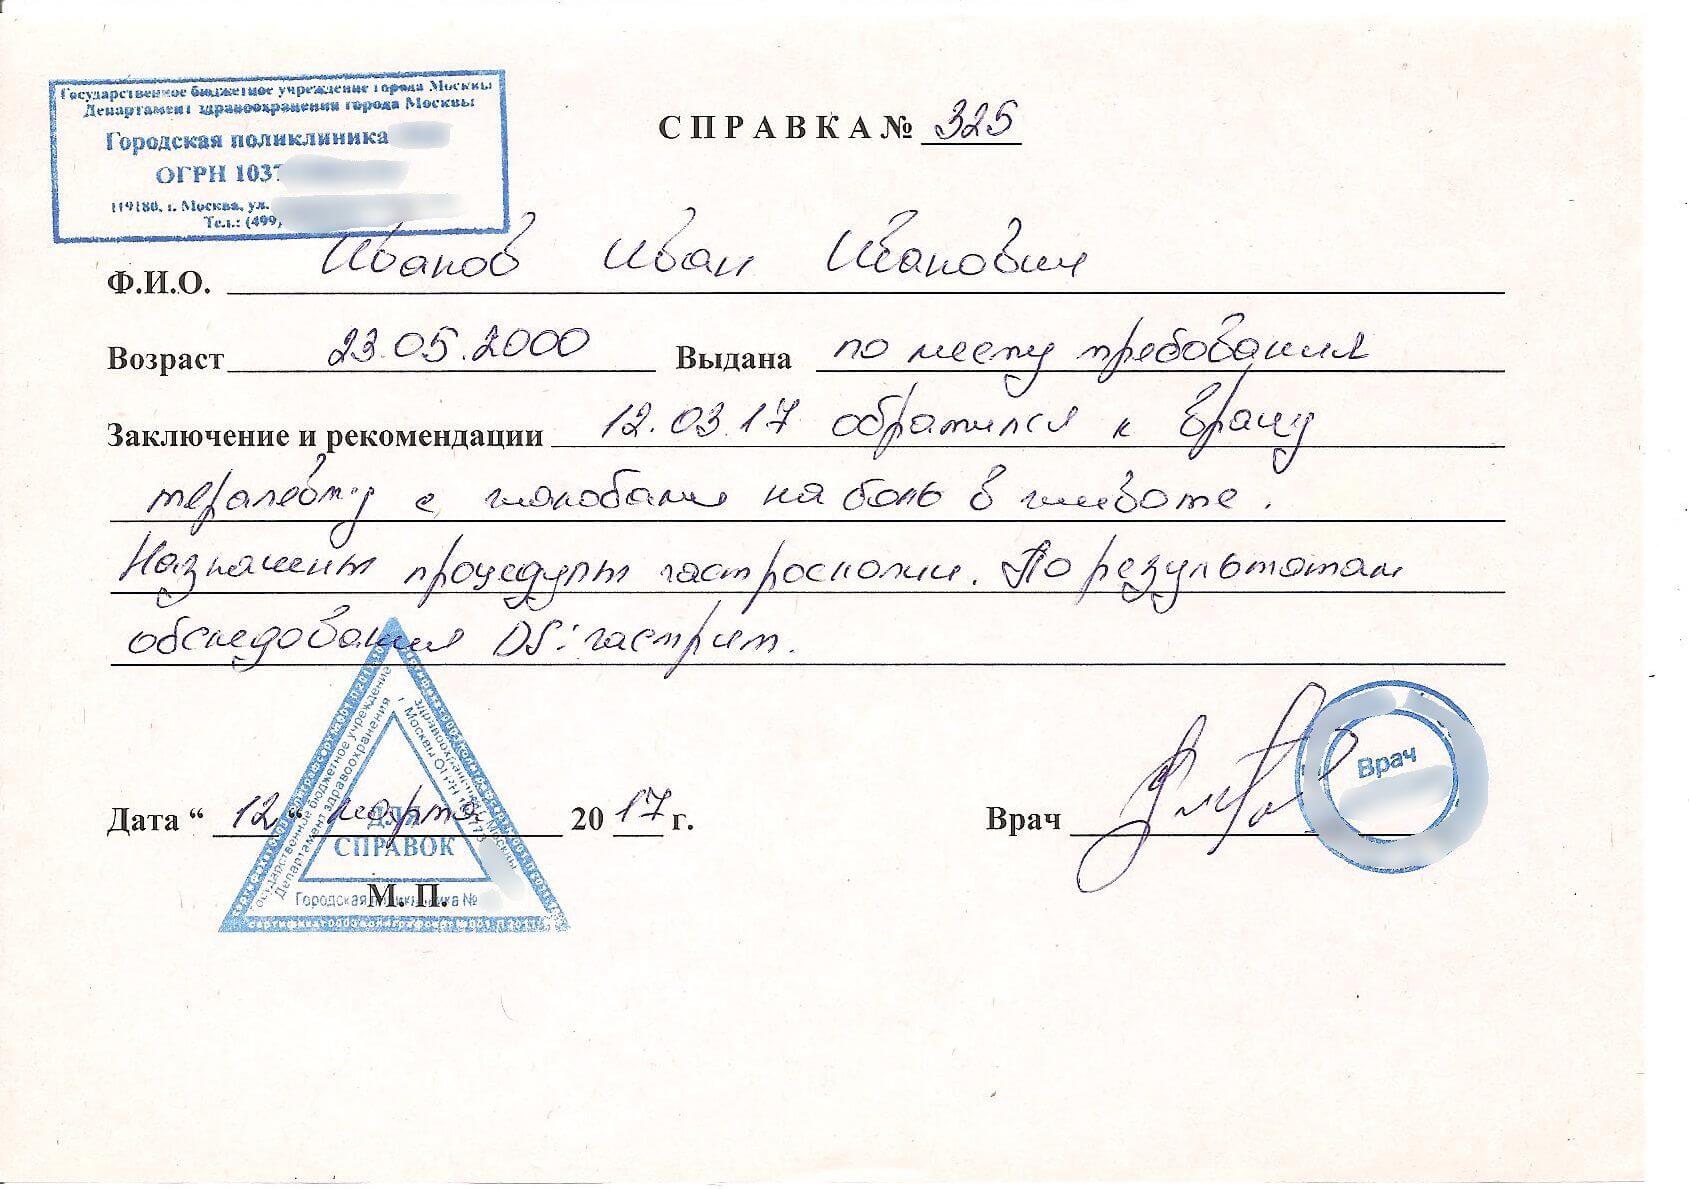 Государственное бюджетное учреждение города Москвы
Департамент здравоохранения города Москвы
Городская поликлиника
ОГРН 1037
119180, г. Москва, ул.
Тел.: (499)
СПРАВКА № 325
Ф.И.О. Иванов Иван Иванович
Возраст 23.05.2000 Выдана по месту требования
Заключение и рекомендации 12.03.17 обратился к врачу
терапевту с жалобами на боль в животе.
Назначены процедуры гастроскопии. По результатам
обследования DS: гастрит.
Государственное бюджетное учреждение
здравоохранения
Департамент здравоохранения
г. Москвы ОГРН
ДЛЯ
СПРАВОК
Городская поликлиника №
Дата “ 12 “ марта 2017 г.
М. П.
Врач
Врач